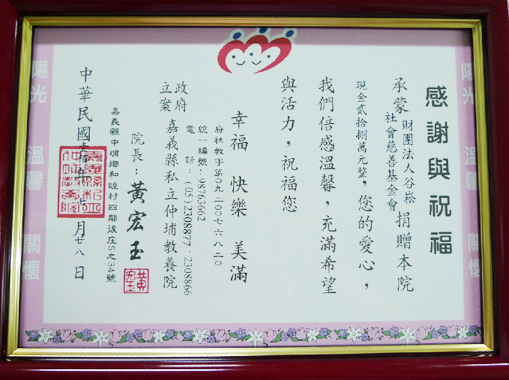 感謝與祝福
承蒙 財團法人谷崧 社會慈善基金會 捐贈本院
現金貳拾捌萬元整，您的愛心，
我們倍感溫馨，充滿希望
與活力，祝福您
幸福 快樂 美滿
府社教字第０九二００七六八二０
統一編號：08763662
電話：(05)2308877、2308866
政府立案 嘉義縣私立仲埔教養院
院長：黃宏玉
嘉義縣中埔鄉和睦村四鄰後庄5之34號
中華民國 年 月廿八日
陽光 溫馨 關懷
陽光 溫馨 關懷